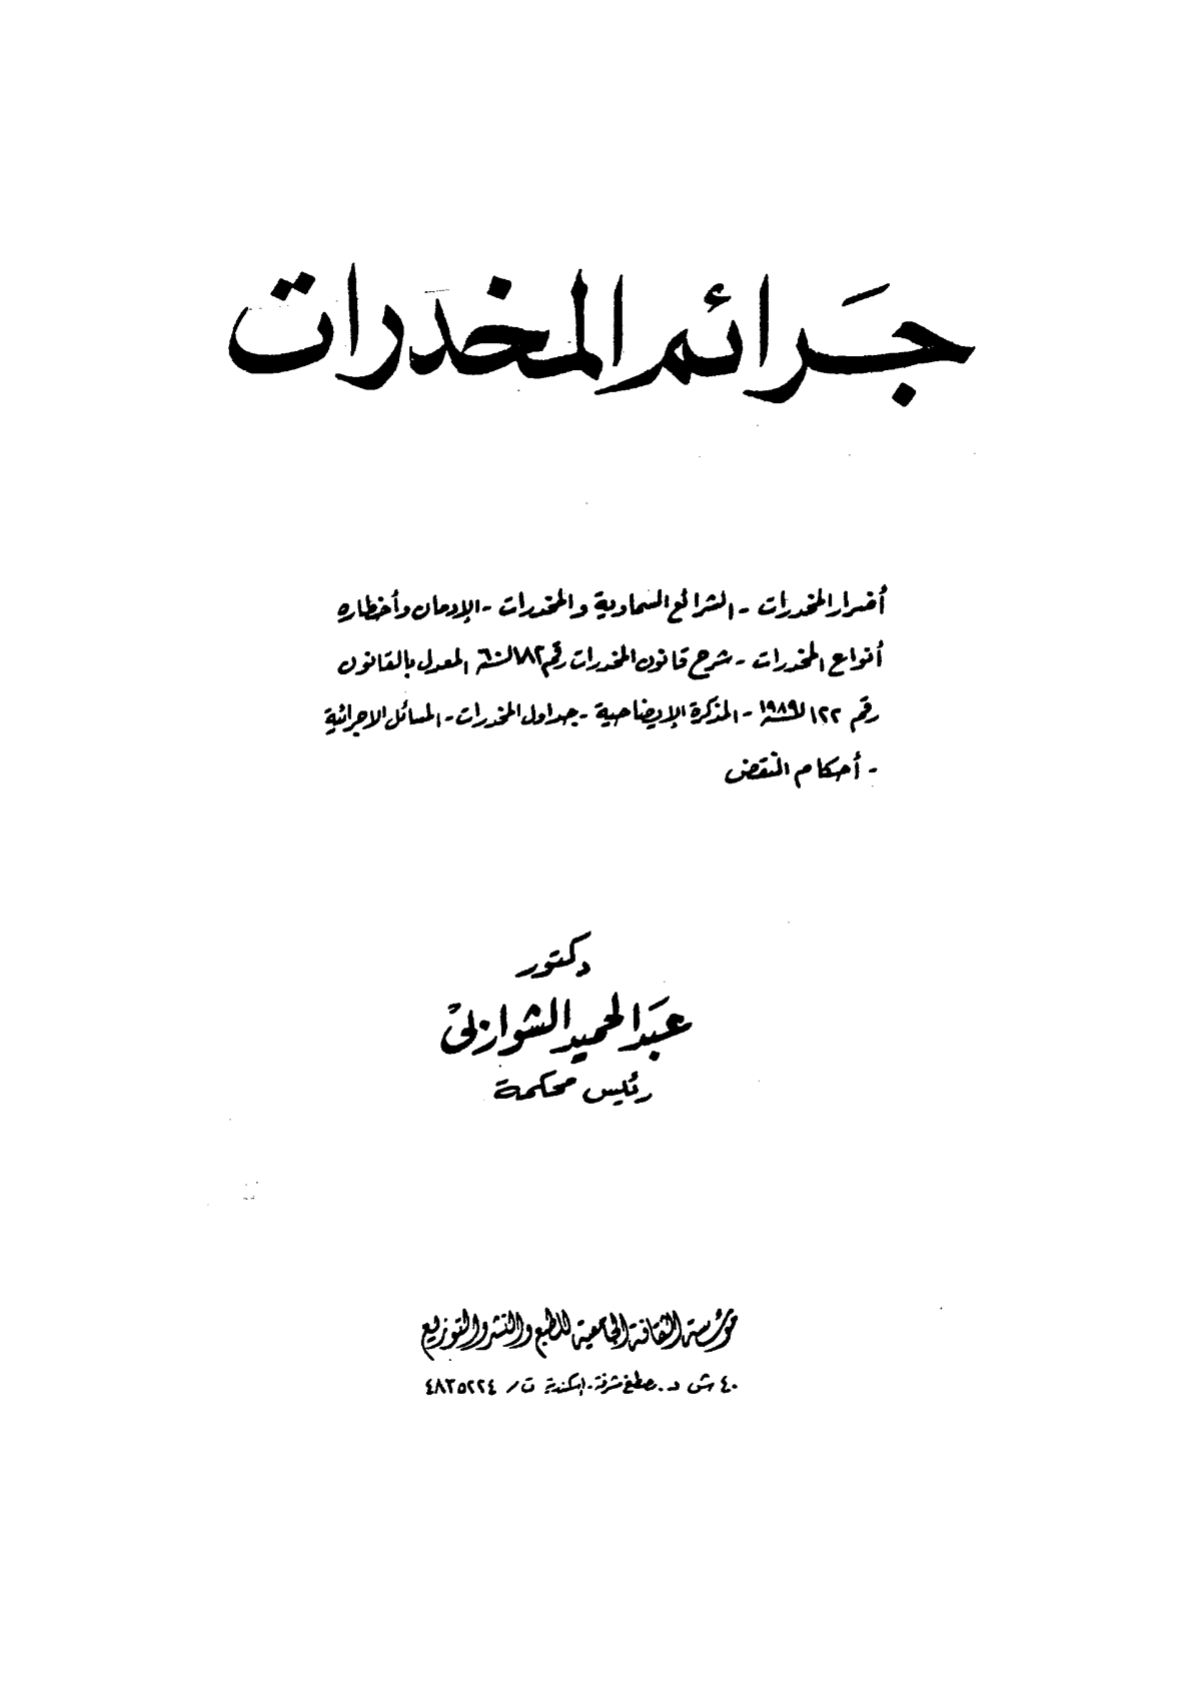 جرائم المخدرات
أضرار المخدرات - الشرائع السماوية والمخدرات - الإدمان وأخطاره
أنواع المخدرات - شرح قانون المخدرات رقم ١٨٢ لسنة ٦٠ المعدل بالقانون
رقم ١٢٢ لسنة ١٩٨٩ - المذكرة الإيضاحية - جداول المخدرات - المسائل الاجرائية
- أحكام النقض
دكتور
عبد الحميد الشواربي
رئيس محكمة
مؤسسة الثقافة الجامعية للطبع والنشر والتوزيع
٤٠ ش د. مصطفى مشرفة - اسكندرية ت / ٤٨٣٥٢٢٤